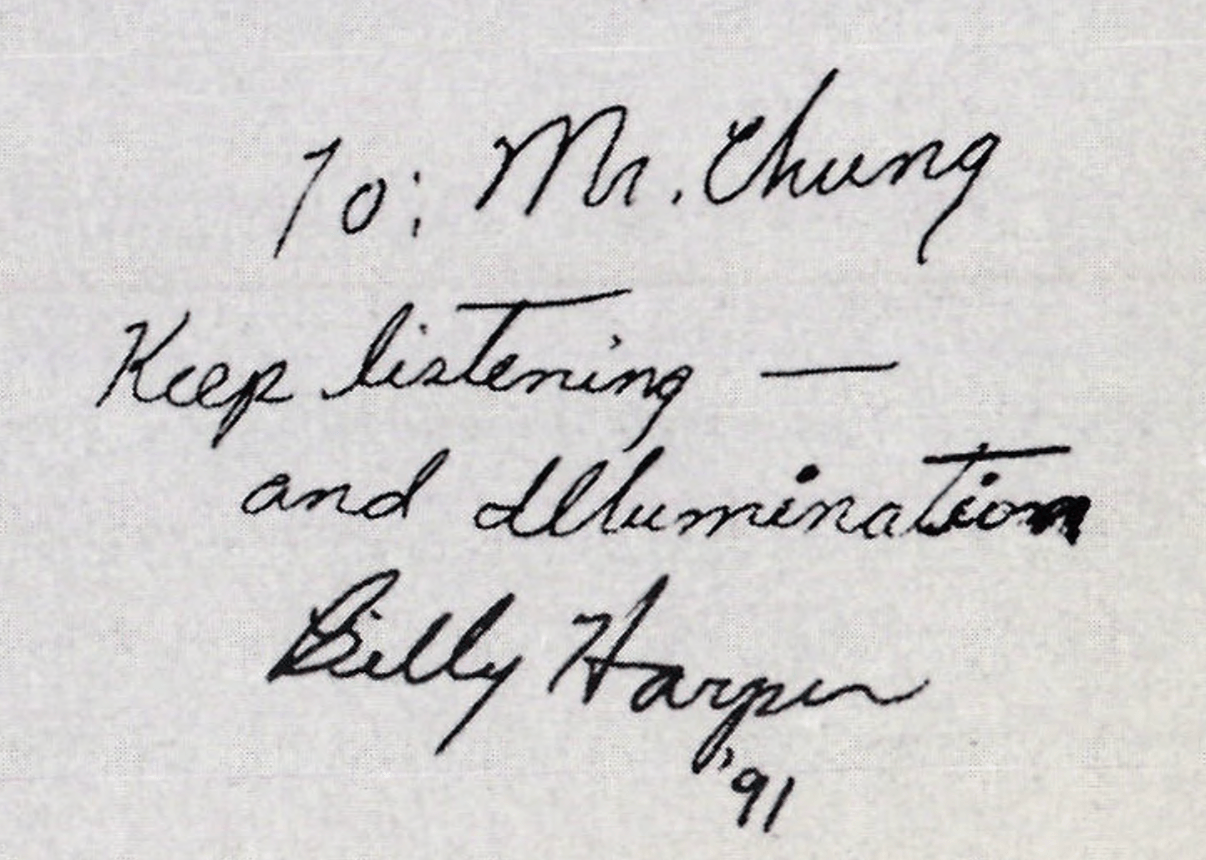 To: Mr. Chung
Keep listening —
and Illumination
Billy Harper
'91